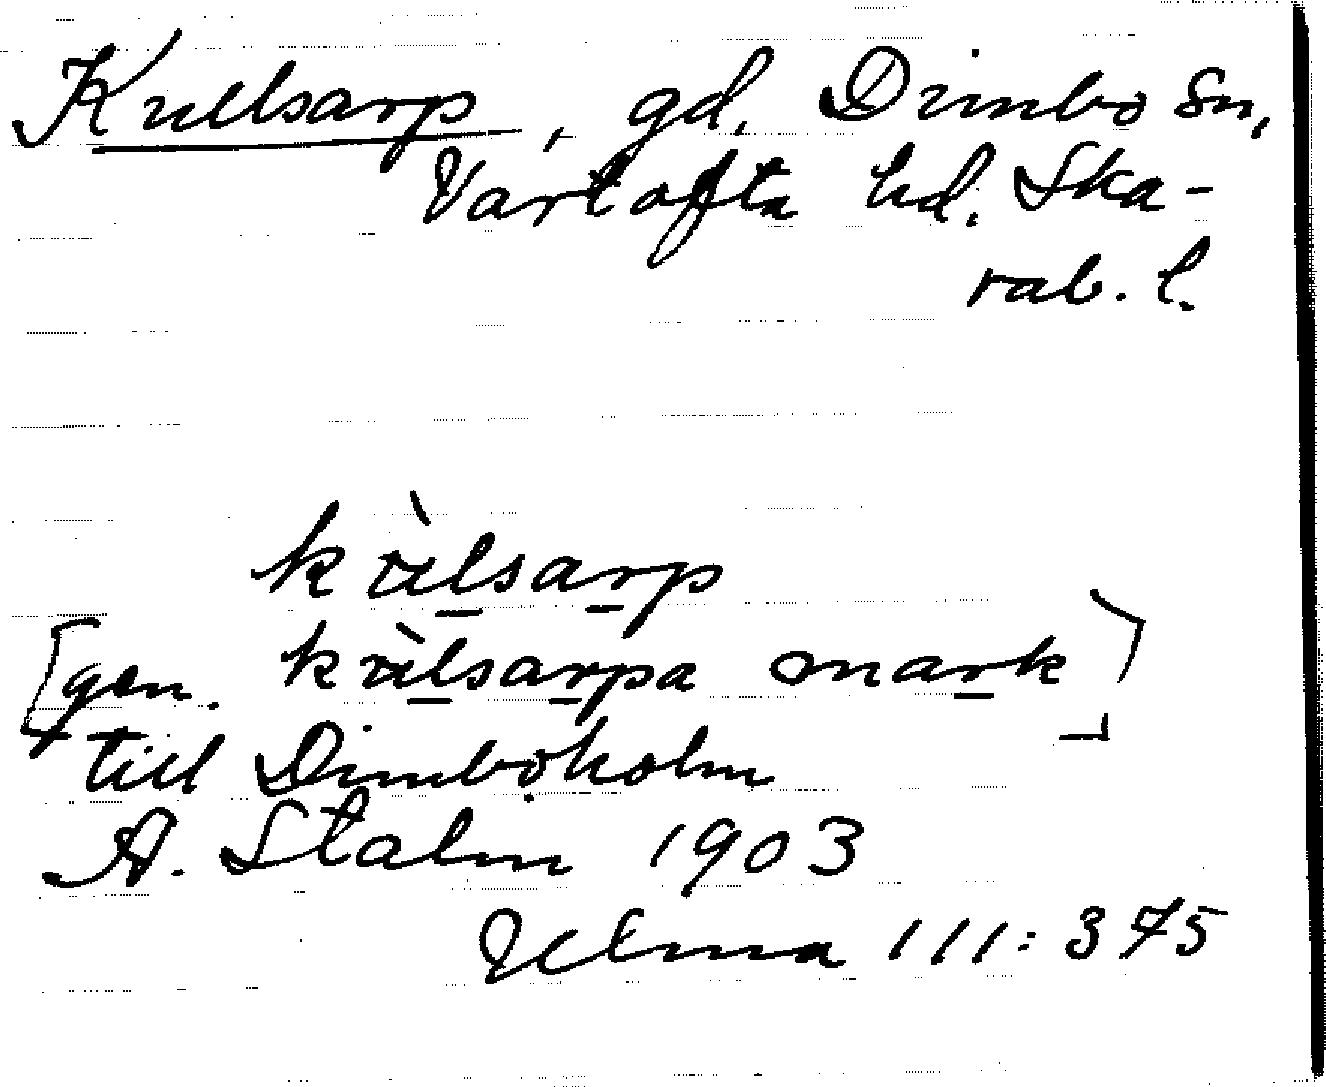 Kullsarp, gd, Dimbo sn,
Vartofta hd. Ska-
rab. l.
kùlsarp
[gen. kùlsarpa mark]
till Dimboholm
A. Stalin 1903
Ulma 111:375